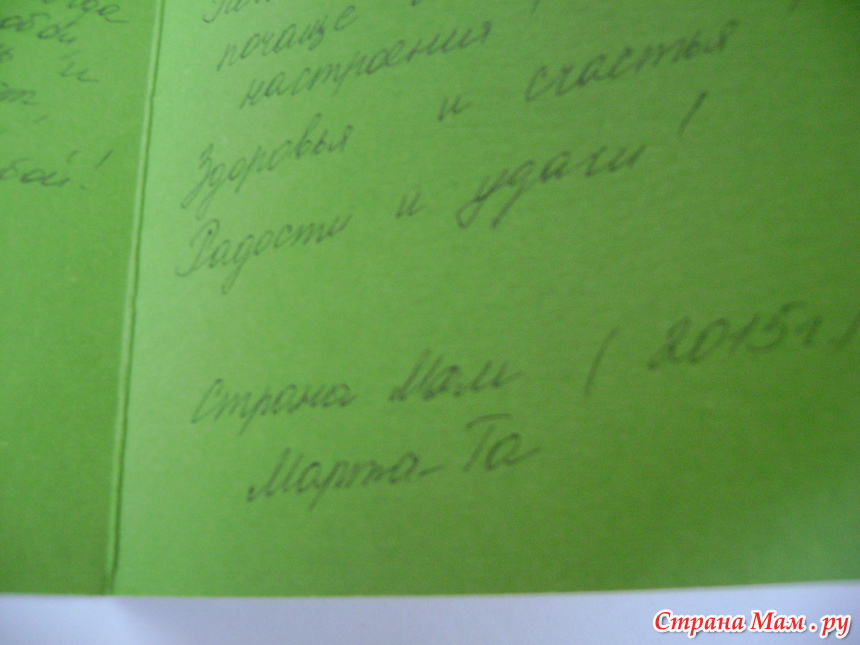 почаще
настроения!
Здоровья и счастья
Радости и удачи!
Страна Мам (2015г.)
Марта-Та
и
бой!
Страна Мам.ру